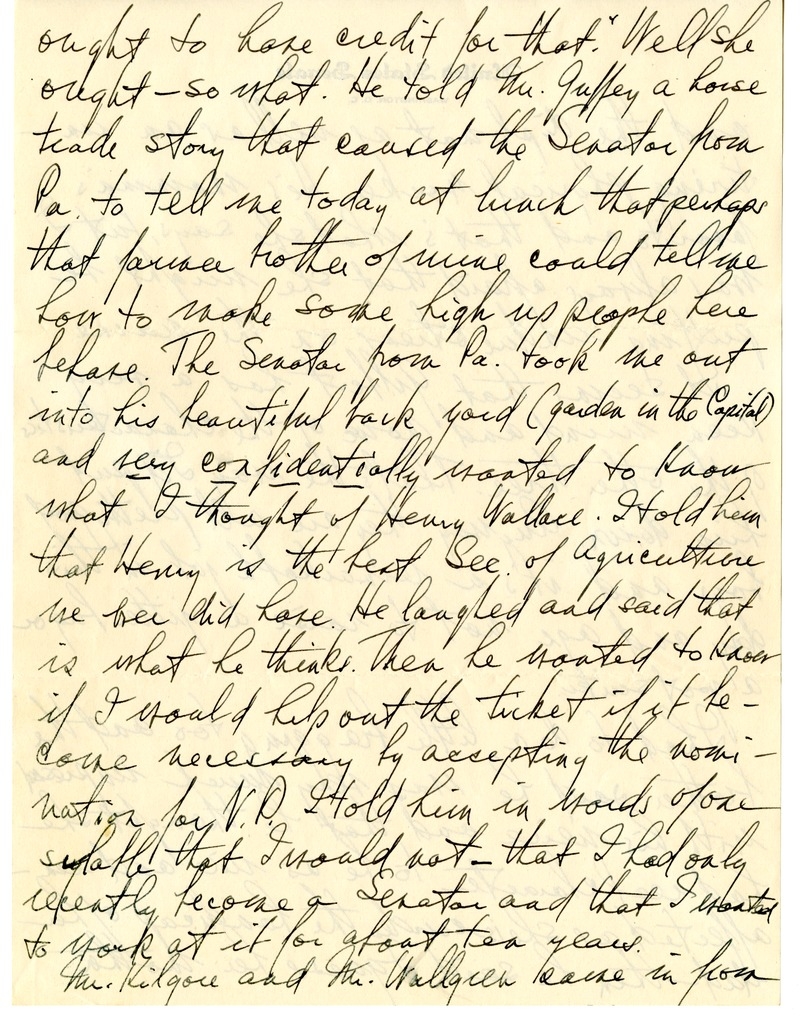 ought to have credit for that." Well she
ought – so what. He told Mr. Guffey a horse
trade story that caused the Senator from
Pa. to tell me today at lunch that perhaps
that farmer brother of mine could tell me
how to make some high up people here
behave. The Senator from Pa. took me out
into his beautiful back yard (garden in the Capital)
and very confidentially wanted to know
what I thought of Henry Wallace. I told him
that Henry is the best Sec. of Agriculture
we ever did have. He laughed and said that
is what he thinks. Then he wanted to know
if I would help out the ticket if it be-
came necessary by accepting the nomi-
nation for V.P. I told him in words of one
sylable that I would not – that I had only
recently become a Senator and that I wanted
to work at it for about ten years.
Mr. Kilgore and Mr. Wallgren came in from